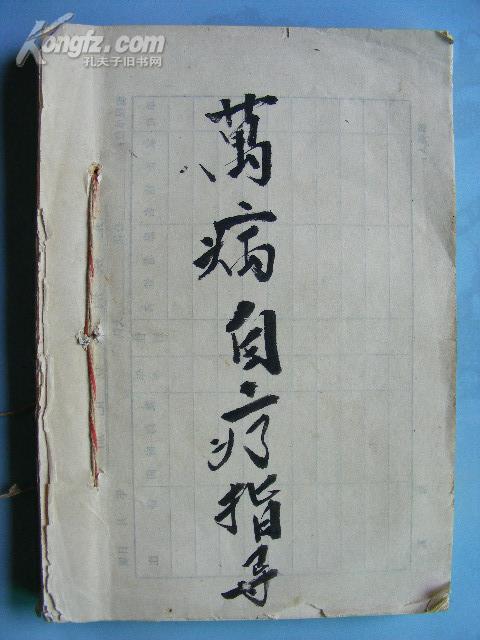 Kongfz.com
孔夫子旧书网
萬病自疗指导